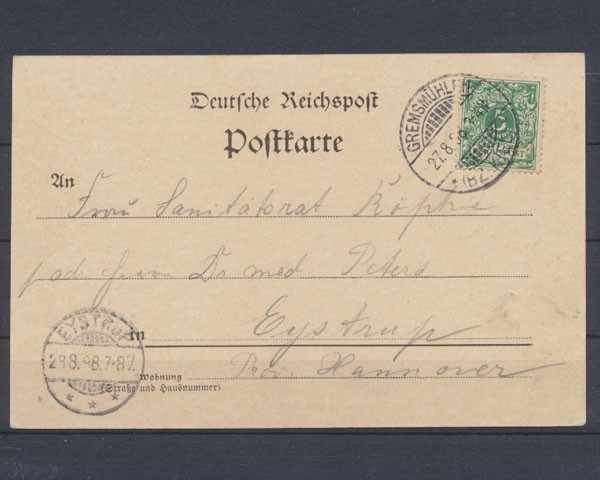 Deutsche Reichspost
Postkarte
GREMSMÜHLEN
27.8.98
(BZ. KIEL)
5
An
Frau Sanitätsrat Köpke
Dr med Peters
in Eystrup
Prov. Hannover
Wohnung
(Straße und Hausnummer)
EYSTRUP
28.8.98.7-8V.
* * *